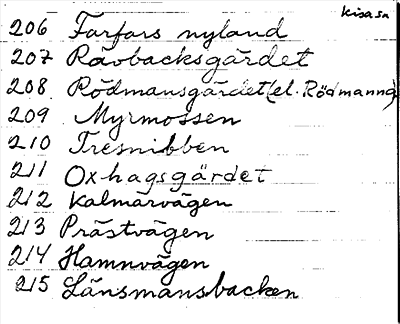 Kisasn
206 Farfars nyland
207 Rävbacksgärdet
208 Rödmansgärdet (el. Rödmanng)
209 Myrmossen
210 Tresnibben
211 Oxhagsgärdet
212 Kalmarvägen
213 Prästvägen
214 Hamnvägen
215 Länsmansbacken